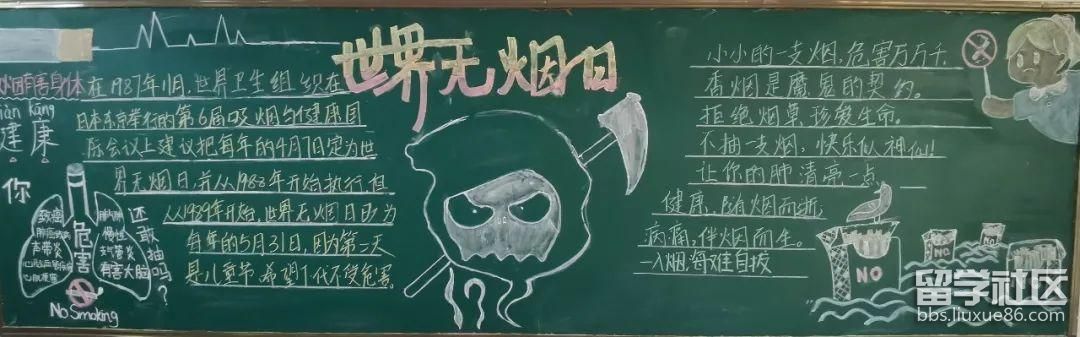 世界无烟日
吸烟有害身体
jiàn kāng
健康
在1987年11月,世界卫生组织在
日本东京举行的第6届吸烟与健康国
际会议上建议把每年的4月7日定为世
界无烟日,并从1988年开始执行,但
从1989年开始,世界无烟日改为
每年的5月31日,因为第二天
是儿童节,希望下代不受危害。
你
还敢抽吗?
危害
致癌
声带炎
慢性
支管炎
有害大脑
No Smoking
小小的一支烟,危害万万千,
香烟是魔鬼的契约。
拒绝烟草,珍爱生命。
不抽一支烟,快乐似神仙!!
让你的肺清亮一点
健康,随烟而逝,
病痛,伴烟而生。
一入烟海难自拔
NO
NO
NO
留学社区
bbs.liuxue86.com